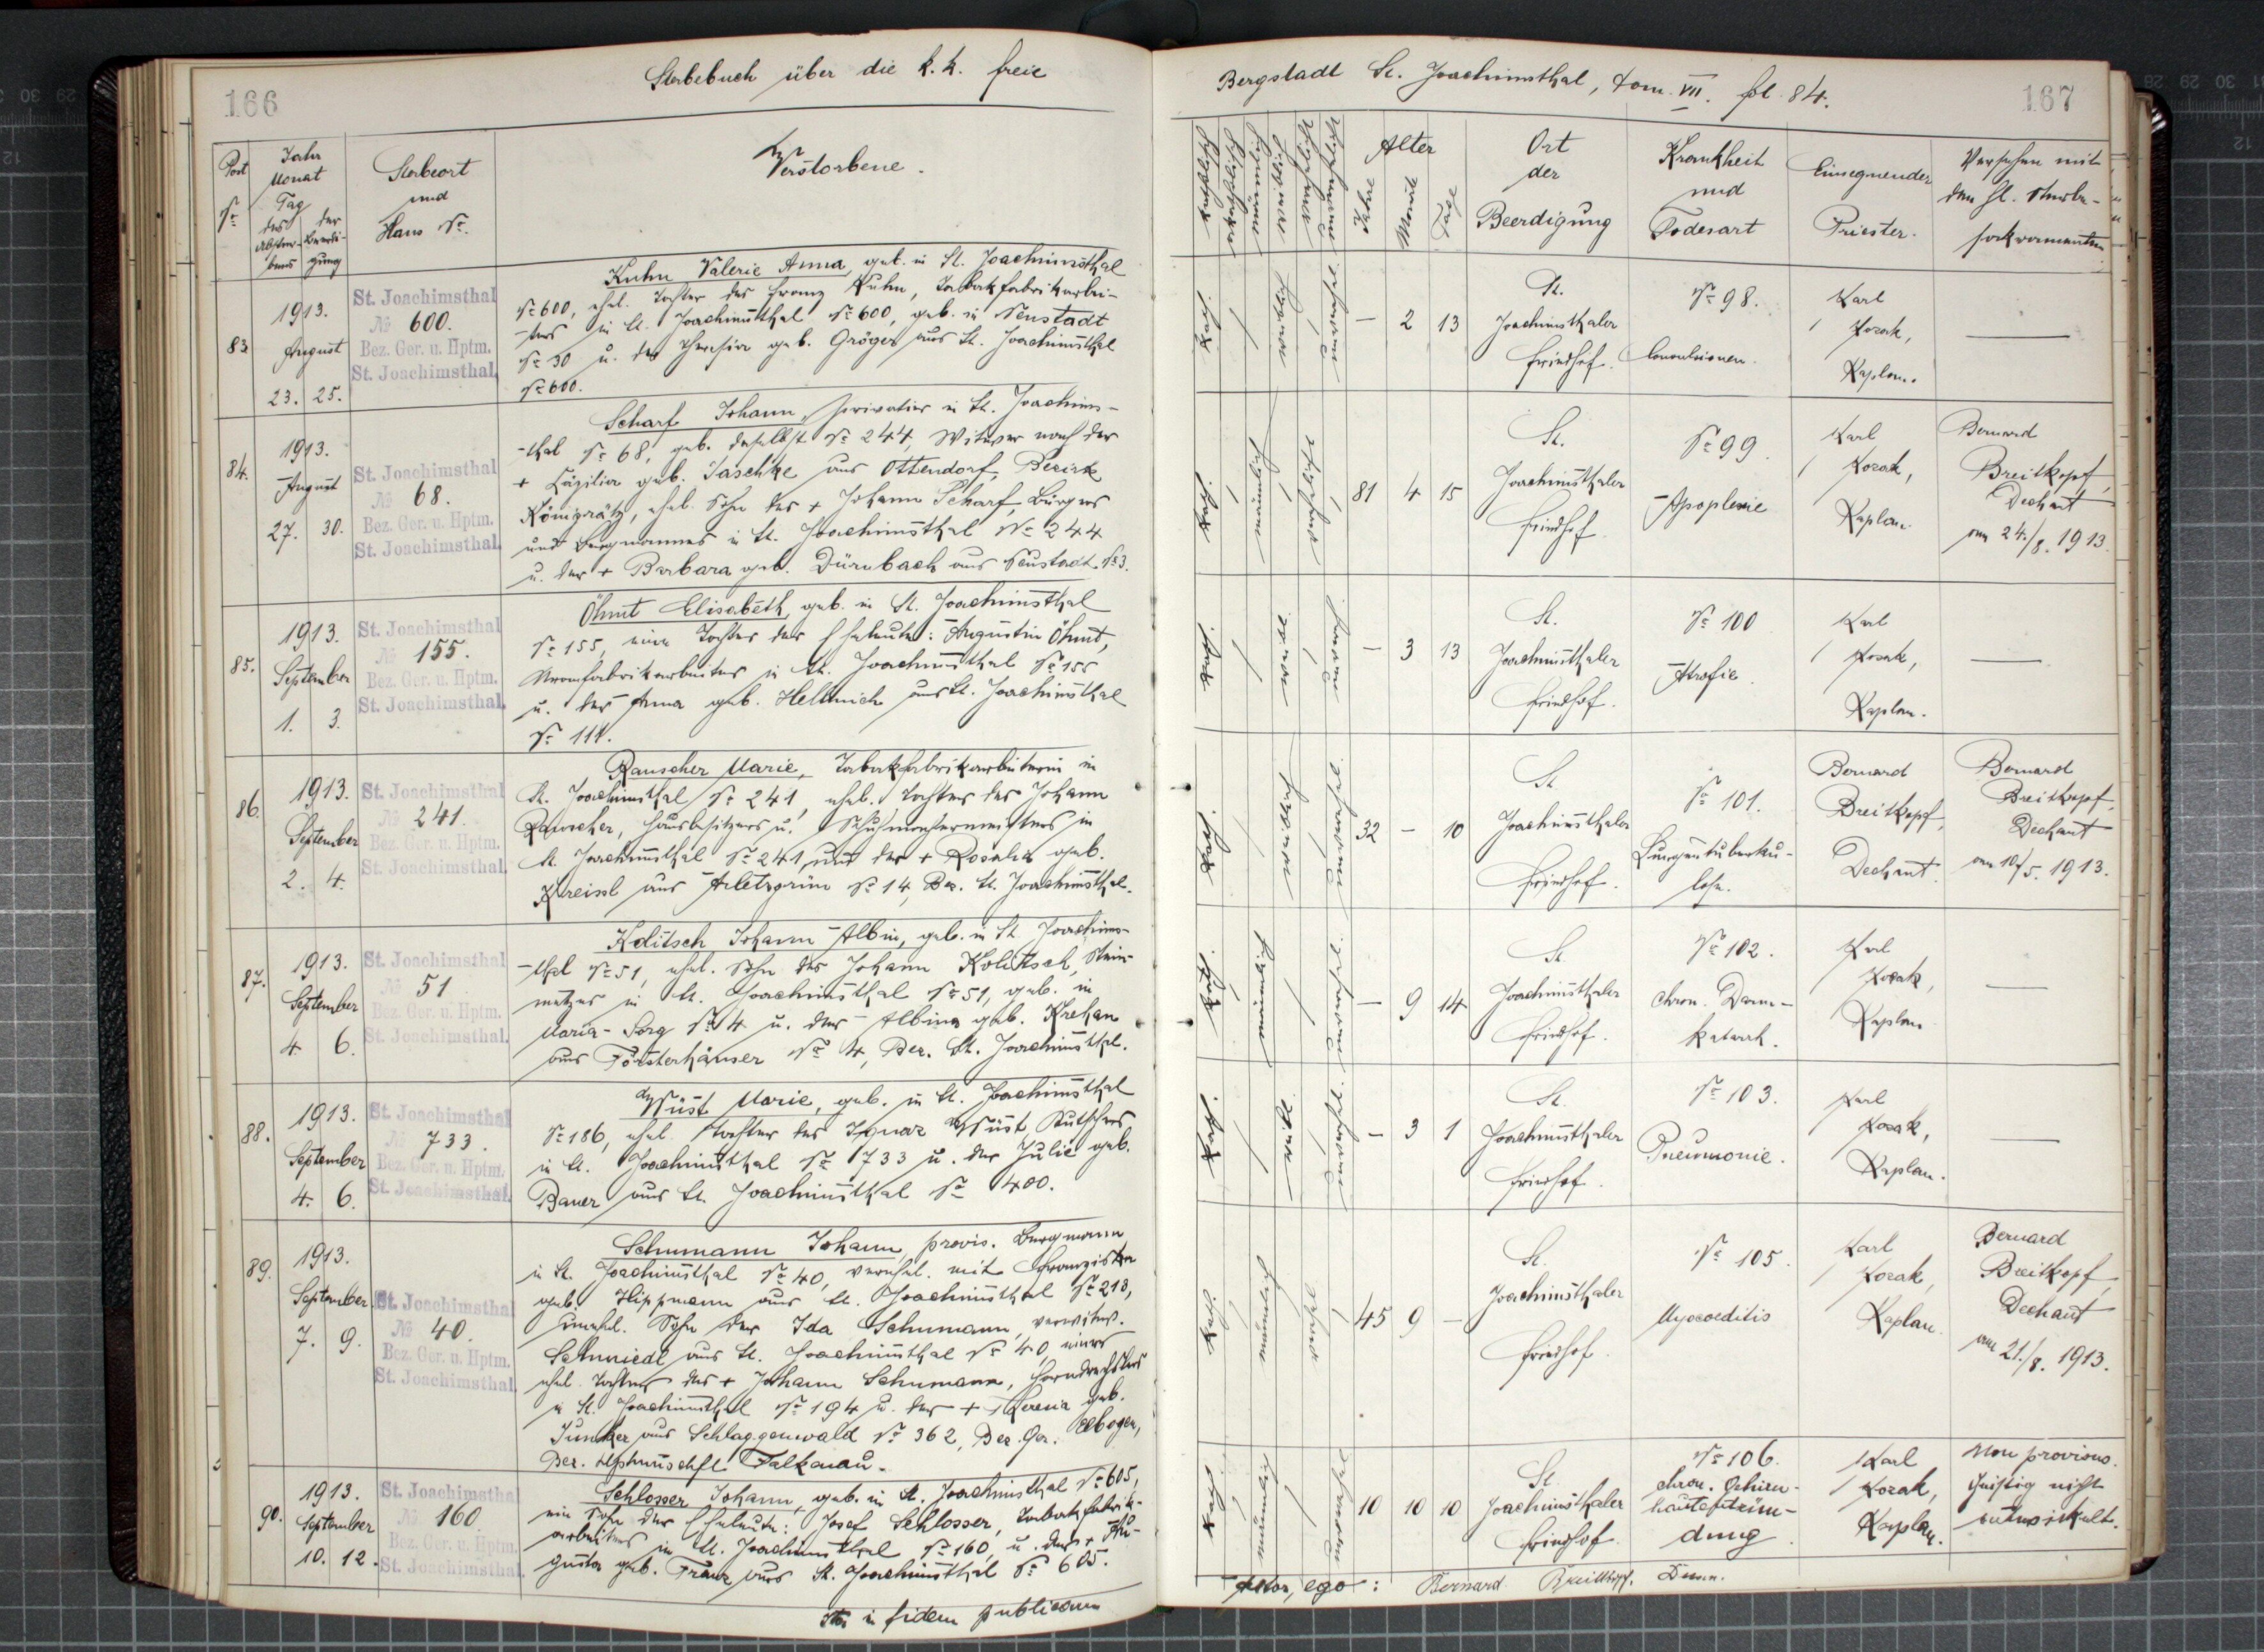 166
Sterbebuch über die k.k. freie
Post Nr.
Jahr Monat Tag
des Abster-bens
der Beerdi-gung
Sterbeort und Haus Nr.
Verstorbene.
83.
1913.
August
23. 25.
St. Joachimsthal
№ 600.
Bez. Ger. u. Hptm.
St. Joachimsthal.
Kuhn Valerie Anna, geb. in St. Joachimsthal
Nr 600, ehel. Tochter des Franz Kuhn, Tabakfabrikarbei-
ters in St. Joachimsthal Nr 600, geb. in Neustadt
Nr 30 u. der Theresia geb. Gröger aus St. Joachimsthal
Nr 600.
84.
1913.
August
27. 30.
St. Joachimsthal
№ 68.
Bez. Ger. u. Hptm.
St. Joachimsthal.
Scharf Johann, Privatier in St. Joachims-
-thal Nr 68, geb. daselbst Nr 244, Witwer nach der
+ Cäzilia geb. Jaschke aus Ottendorf, Bezirk
Königrätz, ehel. Sohn des + Johann Scharf, Bürgers
und Bergmannes in St. Joachimsthal Nr 244
u. der + Barbara geb. Dürnbach aus Neustadt Nr 3.
85.
1913.
September
1. 3.
St. Joachimsthal
№ 155.
Bez. Ger. u. Hptm.
St. Joachimsthal.
Öhmt Elisabeth, geb. in St. Joachimsthal
Nr 155, eine Tochter der Eheleute: Augustin Öhmt,
in St. Joachimsthal Nr 155
u. der Anna geb. Hellmich aus St. Joachimsthal
Nr 111.
86.
1913.
September
2. 4.
St. Joachimsthal
№ 241.
Bez. Ger. u. Hptm.
St. Joachimsthal.
Rauscher Marie, Tabakfabrikarbeiterin in
St. Joachimsthal Nr 241, ehel. Tochter des Johann
Rauscher, Hausbesitzers u. Schuhmachermeisters in
St. Joachimsthal Nr 241 und der + Rosalia geb.
Kreissl aus Arletzgrün Nr 14, Bez. St. Joachimsthal.
87.
1913.
September
4. 6.
St. Joachimsthal
№ 51
Bez. Ger. u. Hptm.
St. Joachimsthal.
Kolitsch Johann Albin, geb. in St. Joachims-
-thal Nr 51, ehel. Sohn des Johann Kolitsch, Stein-
metzes in St. Joachimsthal Nr 51, geb. in
Maria-Sorg Nr 4 u. der Albina geb. Krehan
aus Försterhäuser Nr 4, Bez. St. Joachimsthal.
88.
1913.
September
4. 6.
St. Joachimsthal
№ 733.
Bez. Ger. u. Hptm.
St. Joachimsthal.
Wüst Marie, geb. in St. Joachimsthal
Nr 186, ehel. Tochter des Ignaz Wüst Kutschers
in St. Joachimsthal Nr 733 u. der Julie geb.
Bauer aus St. Joachimsthal Nr 400.
89.
1913.
September
7. 9.
St. Joachimsthal
№ 40.
Bez. Ger. u. Hptm.
St. Joachimsthal.
Schumann Johann, provis. Bergmann
in St. Joachimsthal Nr 40, verehel. mit Franziska
geb. Hippmann aus St. Joachimsthal Nr 213,
unehel. Sohn der Ida Schumann, verwitw.
Schmiedl aus St. Joachimsthal Nr 40, einer
ehel. Tochter des + Johann Schumann,
in St. Joachimsthal Nr 194 u. der + Theresia geb.
Junker aus Schlaggenwald Nr 362, Bez. Ger. Elbogen,
Bez. Hptmschft Falkenau.
90.
1913.
September
10. 12.
St. Joachimsthal
№ 160
Bez. Ger. u. Hptm.
St. Joachimsthal.
Schlosser Johann, geb. in St. Joachimsthal Nr 605,
ein Sohn der Eheleute: Josef Schlosser, Tabakfabrik-
arbeiters in St. Joachimsthal Nr 160, u. der + Au-
gusta geb. Franz aus St. Joachimsthal Nr 605.
in fidem publicam
Bergstadt St. Joachimsthal, tom. VII. fol. 84.
167
katholisch
männlich
weiblich
Alter
Jahre
Monate
Tage
Ort der Beerdigung
Krankheit und Todesart
Einsegnender Priester.
Versehen mit den hl. Sterbe-sakramenten
kath. weiblich
– 2 13
St. Joachimsthaler Friedhof.
Nr 98.
Convulsionen.
Karl Kozak, Kaplan.
—
kath. männlich
81 4 15
St. Joachimsthaler Friedhof.
Nr 99.
Apoplexie
Karl Kozak, Kaplan
Bernard Breitkopf, Dechant
am 24./8. 1913.
kath.
– 3 13
St. Joachimsthaler Friedhof.
Nr 100
Atrofie.
Karl Kozak, Kaplan.
—
kath. weiblich
32 – 10
St. Joachimsthaler Friedhof.
Nr 101.
Lungentuberku-
lose.
Bernard Breitkopf, Dechant.
Bernard Breitkopf, Dechant
am 10/5. 1913.
kath. männlich
– 9 14
St. Joachimsthaler Friedhof.
Nr 102.
chron. Darm-
katarrh.
Karl Kozak, Kaplan
—
kath.
– 3 1
St. Joachimsthaler Friedhof.
Nr 103.
Pneumonie.
Karl Kozak, Kaplan.
—
kath. männlich
45 9 –
St. Joachimsthaler Friedhof.
Nr 105.
Karl Kozak, Kaplan.
Bernard Breitkopf, Dechant
am 21./8. 1913.
kath. männlich
10 10 10
St. Joachimsthaler Friedhof.
Nr 106.
chron. Gehirn-
hautentzün-
dung
Karl Kozak, Kaplan.
Non provisus.
Geistig nicht
entwickelt.
testor, ego: Bernard Breitkopf,